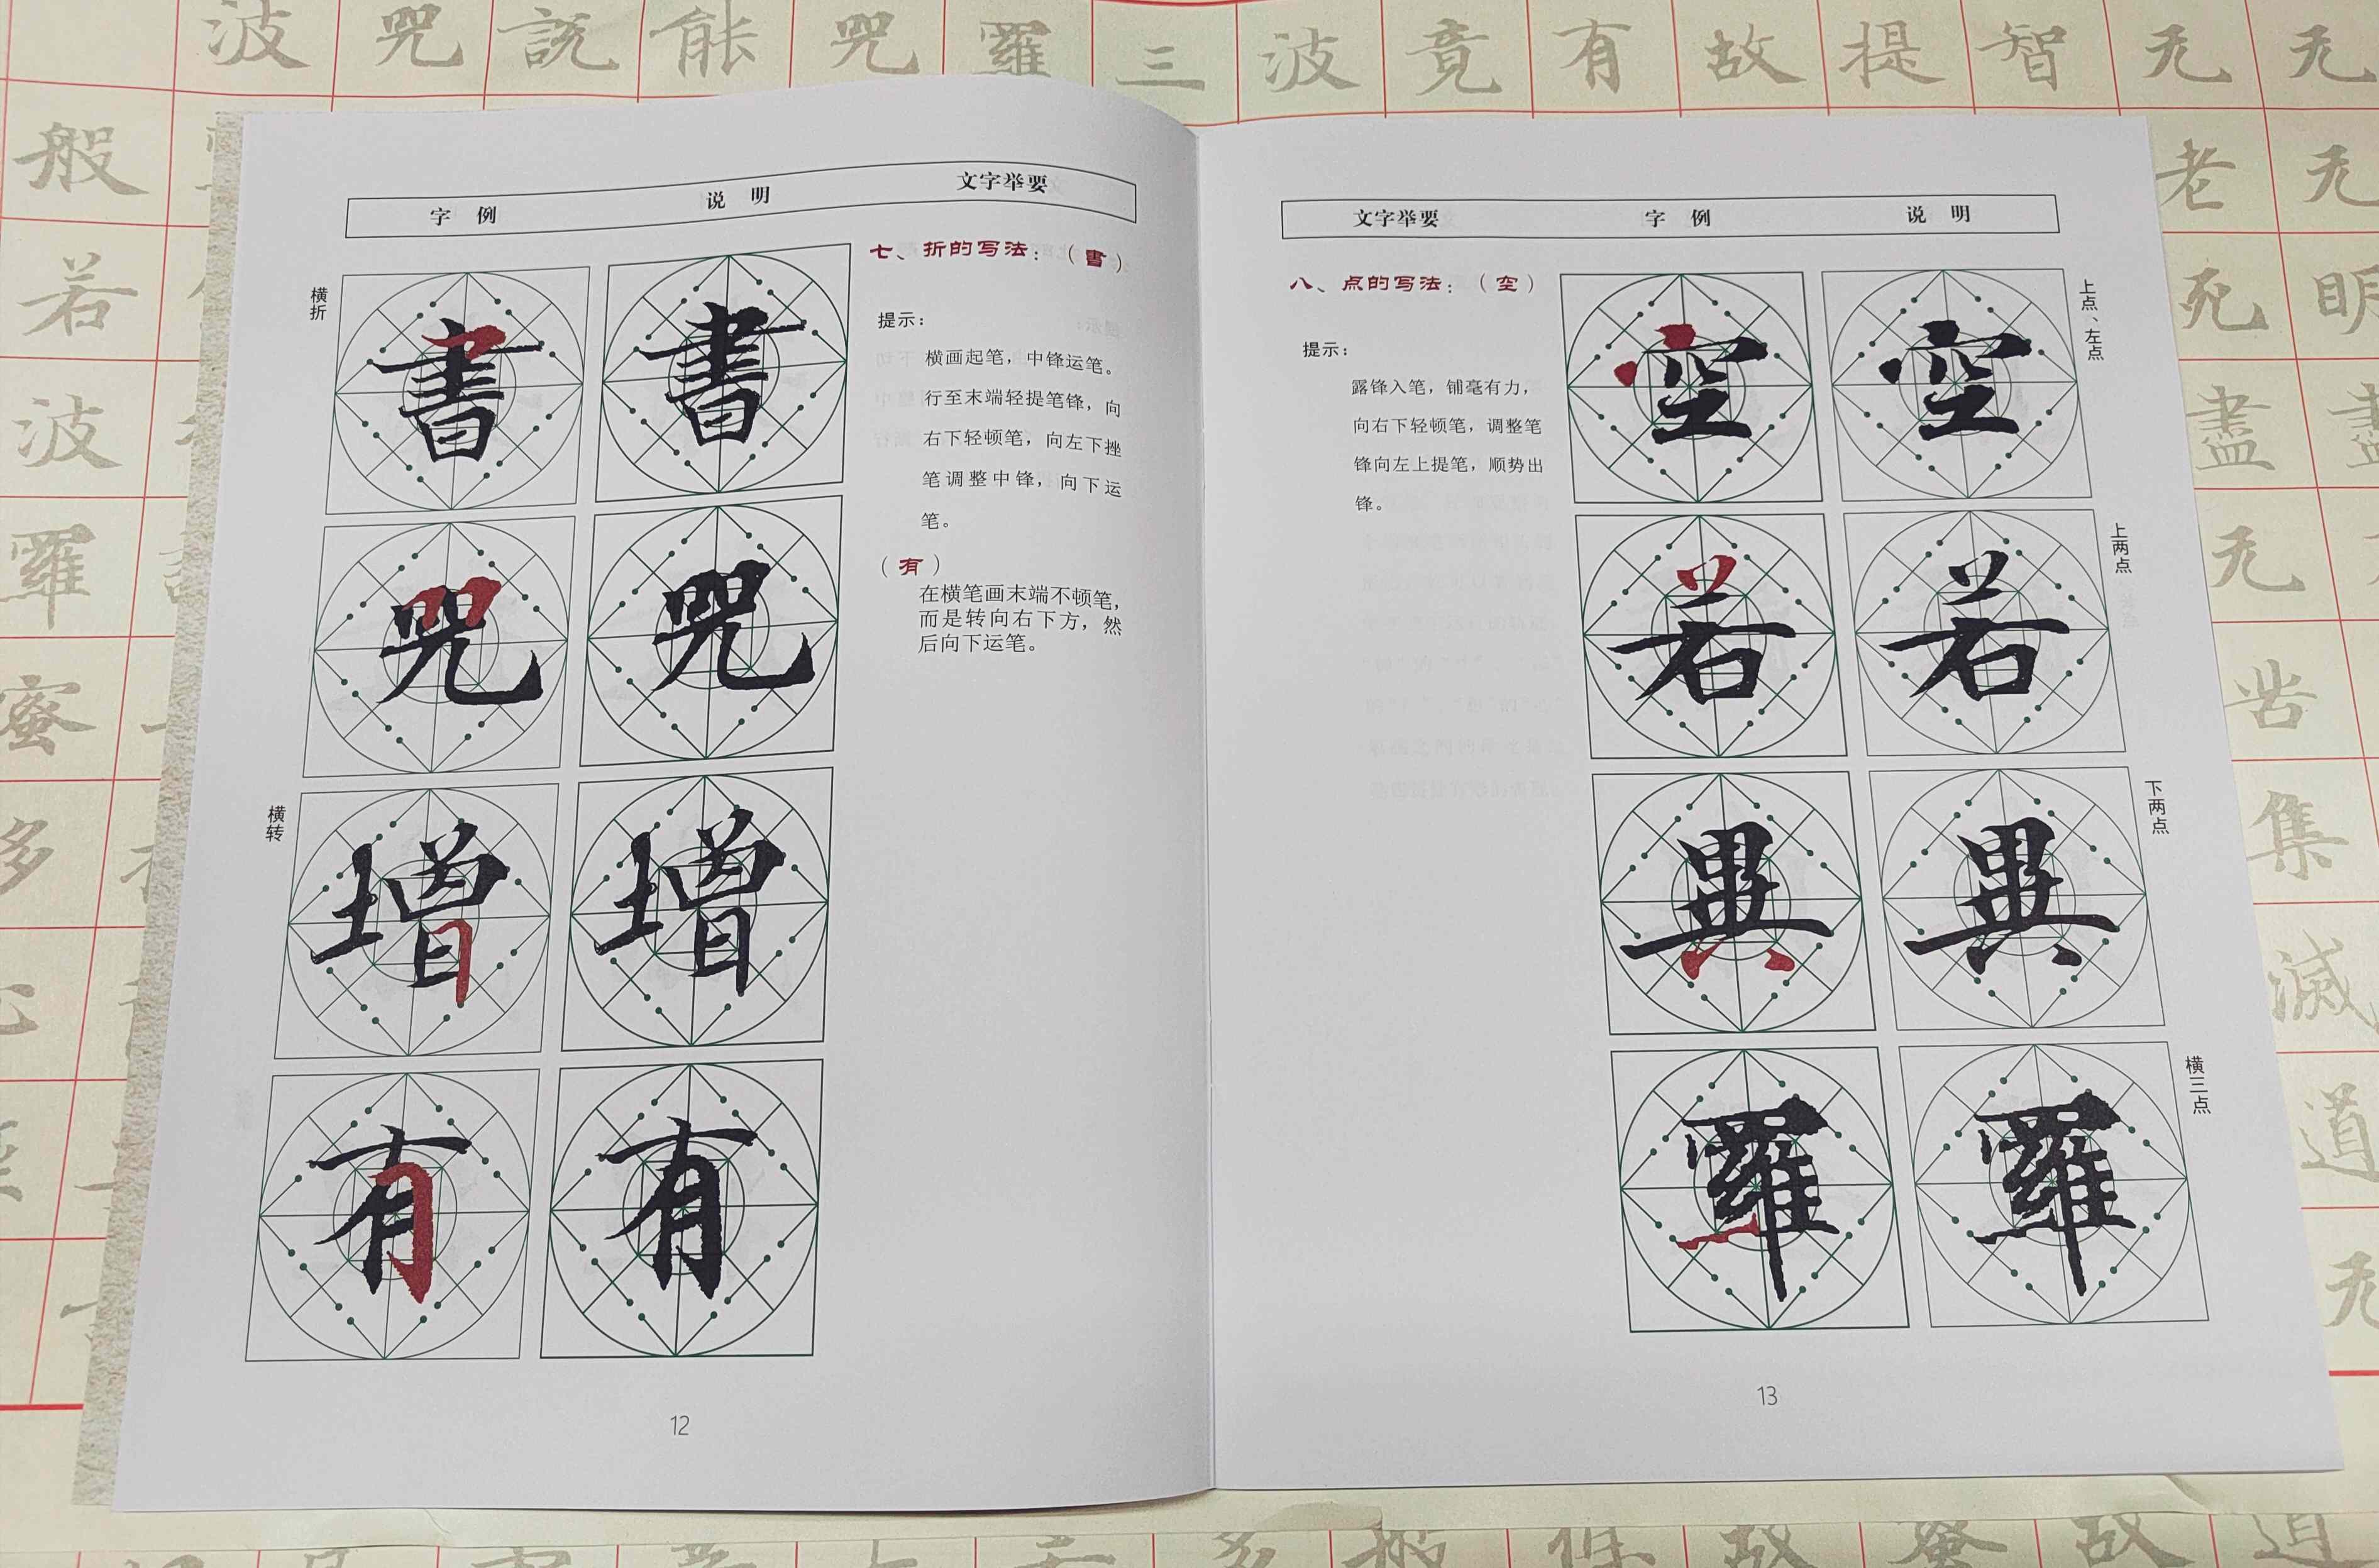 波咒説能咒羅三波竟有故提智无无
般
若
波
羅
蜜
多
心
老无
死明
盡
无
集
滅
道
无
字 例 说 明 文字举要
七、折的写法：（書）
提示：
横画起笔，中锋运笔。
行至末端轻提笔锋，向
右下轻顿笔，向左下挫
笔调整中锋，向下运
笔。
（有）
在横笔画末端不顿笔，
而是转向右下方，然
后向下运笔。
横折
書 書
咒 咒
横转
增 增
有 有
12
文字举要 字 例 说 明
八、点的写法：（空）
提示：
露锋入笔，铺毫有力，
向右下轻顿笔，调整笔
锋向左上提笔，顺势出
锋。
空 空
上点、左点
若 若
上两点
異 異
下两点
羅 羅
横三点
13